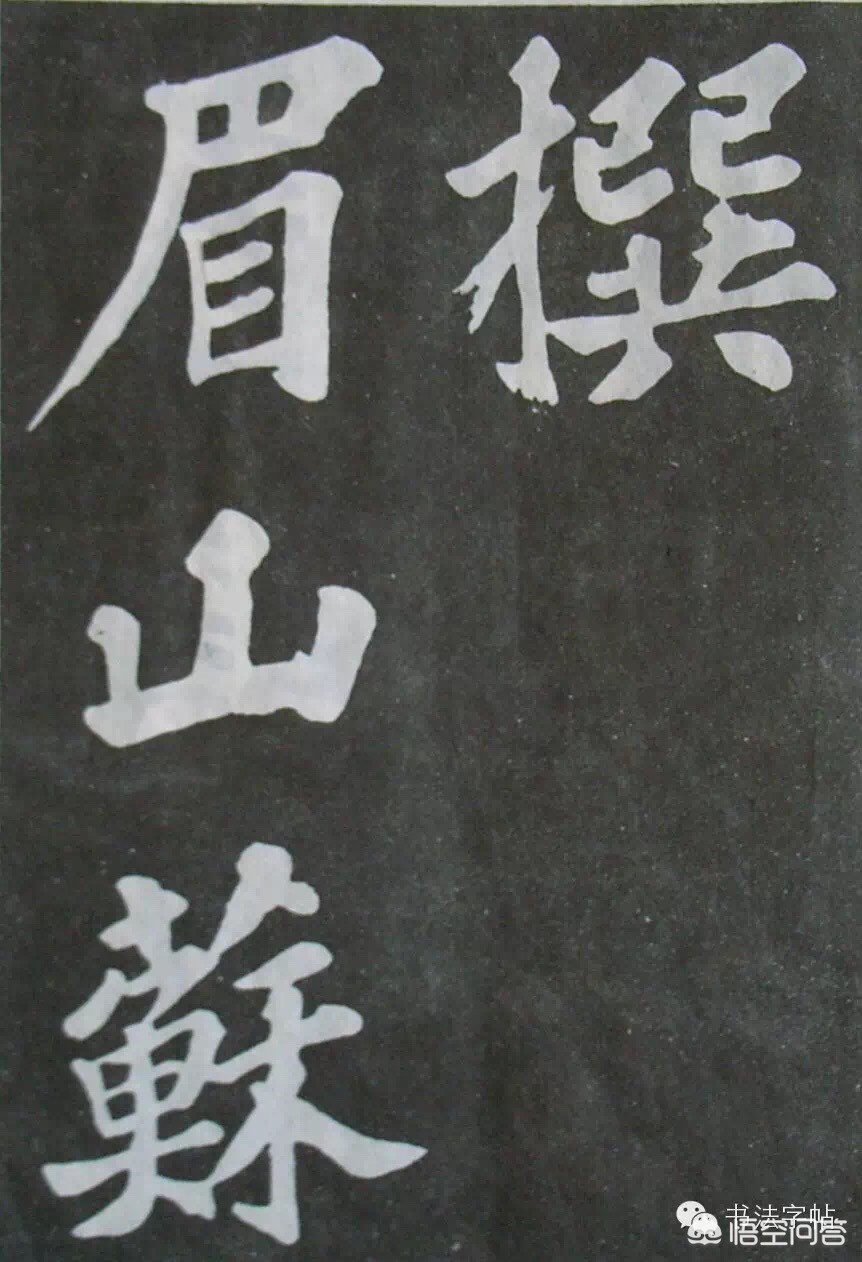 撰
眉山蘇
书法字帖
悟空问答